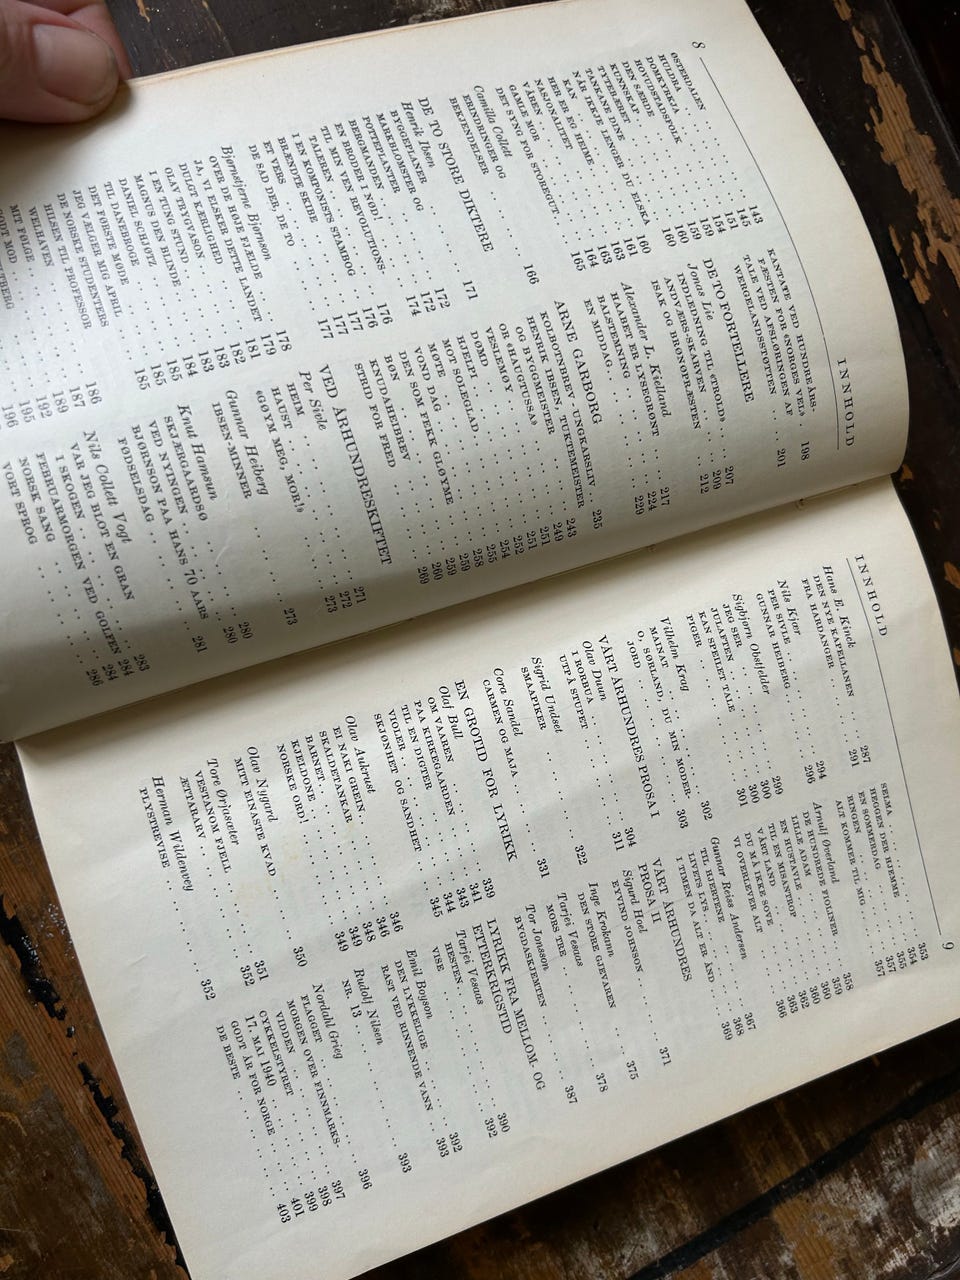 8
INNHOLD
ØSTERDALEN . . . 143
HULDRA . . . 145
DOMKYRKJA . . . 151
HOVUDSTADSFOLK . . . 154
DEN SÆRDE . . . 159
KUNNSKAP . . . 159
TYTEBÆRET . . . 160
TANKANE DINE . . . 160
NÅR IKKJE LENGER DU ELSKA
KAN . . . 160
HER ER EG HEIME . . . 161
NASJONALITET . . . 163
VÅREN . . . 163
GAMLE NOR . . . 164
DET SYNG FOR STOREGUT . . . 165
Camilla Collett
ERINDRINGER OG
BEKJENDELSER . . . 166
DE TO STORE DIKTERE
Henrik Ibsen . . . 171
BYGGEPLANER . . . 172
MARKBLOMSTER OG
POTTEPLANTER . . . 172
BERGMANDEN . . . 174
EN BRODER I NØD! . . . 176
TIL MIN VEN REVOLUTIONS-
TALEREN . . . 176
I EN KOMPONISTS STAMBOG . . . 177
BRÆNDTE SKIBE . . . 177
ET VERS . . . 177
DE SAD DER, DE TO . . . 177
Bjørnstjerne Bjørnson . . . 178
OVER DE HØIE FJÆLDE . . . 179
JA, VI ELSKER DETTE LANDET . . . 181
DULGT KÆRLIGHED . . . 182
OLAV TRYGVASON . . . 183
I EN TUNG STUND . . . 183
MAGNUS DEN BLINDE . . . 184
DANIEL SCHJØTZ . . . 185
TIL DANEBROGE . . . 185
DET FØRSTE MØDE . . . 185
JEG VÆLGER MIG APRIL
DE NORSKE STUDENTERS
HILSEN TIL PROFESSOR
WELHAVEN . . . 186
MIT FØLGE . . . 187
GODT MOD . . . 189
192
195
196
KANTATE VED HUNDREÅRS-
FÆSTEN FOR «NORGES VEL» . . . 198
TALE VED AFSLØRINGEN AF
WERGELANDSSTØTTEN . . . 201
DE TO FORTELLERE
Jonas Lie
INDLEDNING TIL «TROLD» . . . 207
ANDVÆRS-SKARVEN . . . 209
ISAK OG BRØNØPRÆSTEN . . . 212
Alexander L. Kielland
HAABET ER LYSEGRØNT . . . 217
BALSTEMNING . . . 224
EN MIDDAG . . . 229
ARNE GARBORG
KOLBOTNBREV. UNGKARSLIV . . . 235
HENRIK IBSEN, TUKTEMEISTER
OG BYGGMEISTER . . . 243
OR «HAUGTUSSA» . . . 249
VESLEMØY . . . 251
DØMD . . . 251
HJELP! . . . 252
MOT SOLEGLAD . . . 254
MØTE . . . 255
VOND DAG . . . 258
DEN SOM FEKK GLØYME . . . 259
BØN . . . 259
KNUDAHEIBREV . . . 260
STRID FOR FRED . . . 269
VED ÅRHUNDRESKIFTET
Per Sivle . . . 271
HEIM . . . 272
HAUST . . . 273
«GØYM MEG, MOR!»
Gunnar Heiberg
IBSEN-MINNER . . . 273
Knut Hamsun
SKJÆRGAARDSØ . . . 280
VED NYINGEN . . . 280
BJØRNSON PAA HANS 70 AARS
FØDSELSDAG . . . 281
Nils Collett Vogt
VAR JEG BLOT EN GRAN
I SKOGEN . . . 283
FEBRUARMORGEN VED GOLFEN . . . 284
NORSK SANG . . . 284
VORT SPROG . . . 286
INNHOLD
9
Hans E. Kinck
DEN NYE KAPELLANEN . . . 287
FRA HARDANGER . . . 291
Nils Kjær
PER SIVLE . . . 294
GUNNAR HEIBERG . . . 296
Sigbjørn Obstfelder
JEG SER . . . 299
JULAFTEN . . . 300
KAN SPEILET TALE . . . 300
PIGER . . . 301
Vilhelm Krag
MAINAT . . . 302
O, SØRLAND, DU MIN MODER-
JORD . . . 303
VÅRT ÅRHUNDRES PROSA I
Olav Duun
I RORBUA . . . 304
UTPÅ STUPET . . . 311
Sigrid Undset
SMAAPIKER . . . 322
Cora Sandel
CARMEN OG MAJA . . . 331
EN GROTID FOR LYRIKK
Olaf Bull . . . 339
OM VAAREN . . . 341
PAA KIRKEGAARDEN . . . 343
TIL EN DIGTER . . . 344
VIOLER . . . 345
SKJØNHET OG SANDHET
Olav Aukrust
EI NAKI GREIN . . . 346
SKALDETANKAR . . . 346
BARNET . . . 348
KJELDONE . . . 349
NORSKE ORD! . . . 349
Olav Nygard
MITT EITASTE KVAD . . . 350
Tore Ørjasæter
VESTANOM FJELL . . . 351
ÆTTARARV . . . 352
Herman Wildenvey
PLYSTREVISE . . . 352
SELMA . . . 353
HEGGEN DER HJEMME . . . 354
EN SOMMERDAG . . . 355
RINGEN . . . 357
ALT KOMMER TIL MIG . . . 357
Arnulf Øverland
DE HUNDREDE FIOLINER . . . 358
LILLE ADAM . . . 358
EN HUSTAVLE . . . 360
TIL EN MISANTROP . . . 360
VÅRT LAND . . . 362
DU MÅ IKKE SOVE . . . 363
VI OVERLEVER ALT . . . 366
Gunnar Reiss Andersen
TIL HJERTENE . . . 367
LIVETS LYS . . . 368
I TIMEN DA ALT ER ÅND . . . 369
VÅRT ÅRHUNDRES
PROSA II
Sigurd Hoel
EYVIND JOHNSON . . . 371
Inge Krokann
DEN STORE GJEVAREN . . . 375
Tarjei Vesaas
MORS TRE . . . 378
Tor Jonsson
BYGDASKJEMTEN . . . 387
LYRIKK FRA MELLOM- OG
ETTERKRIGSTID
Tarjei Vesaas
HESTEN . . . 390
VISE . . . 392
Emil Boyson
DEN LYKKELIGE . . . 392
RAST VED RINNENDE VANN . . . 393
Rudolf Nilsen
NR. 13 . . . 393
Nordahl Grieg
FLAGGET . . . 396
MORGEN OVER FINNMARKS-
VIDDEN . . . 397
CYKKELSTYRET . . . 398
17. MAI 1940 . . . 399
GODT ÅR FOR NORGE . . . 401
DE BESTE . . . 403